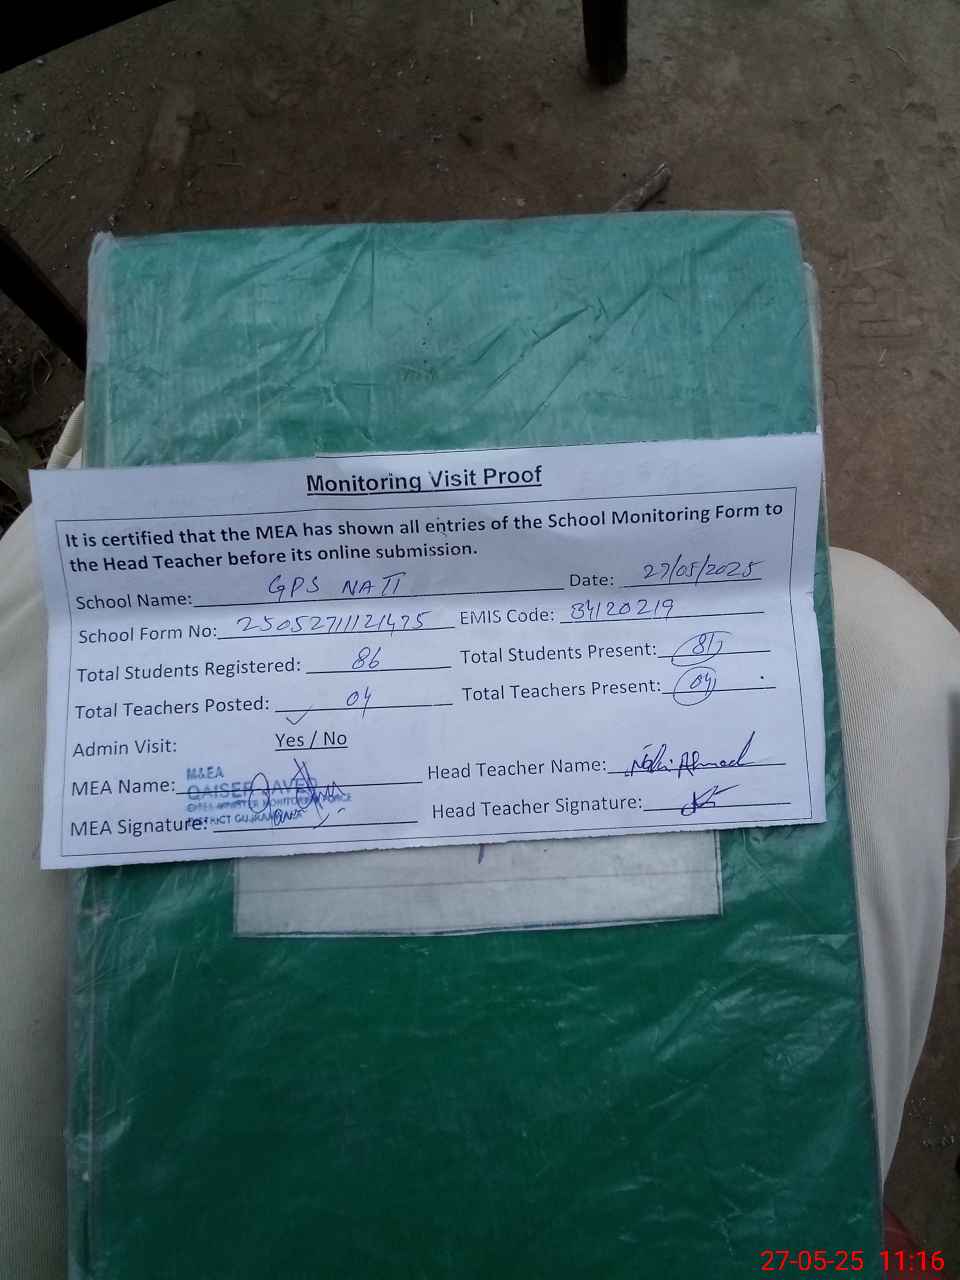 Monitoring Visit Proof
It is certified that the MEA has shown all entries of the School Monitoring Form to
the Head Teacher before its online submission.
School Name: GPS NATT Date: 27/05/2025
School Form No: EMIS Code: 34120219
Total Students Registered: 86 Total Students Present: 81
Total Teachers Posted: 04 Total Teachers Present: 04
Admin Visit: Yes / No
MEA Name: M&EA Head Teacher Name: Ahmad
QAISER JAVED
CHIEF MINISTER MONITORING FORCE
MEA Signature: DISTRICT Head Teacher Signature:
27-05-25 11:16